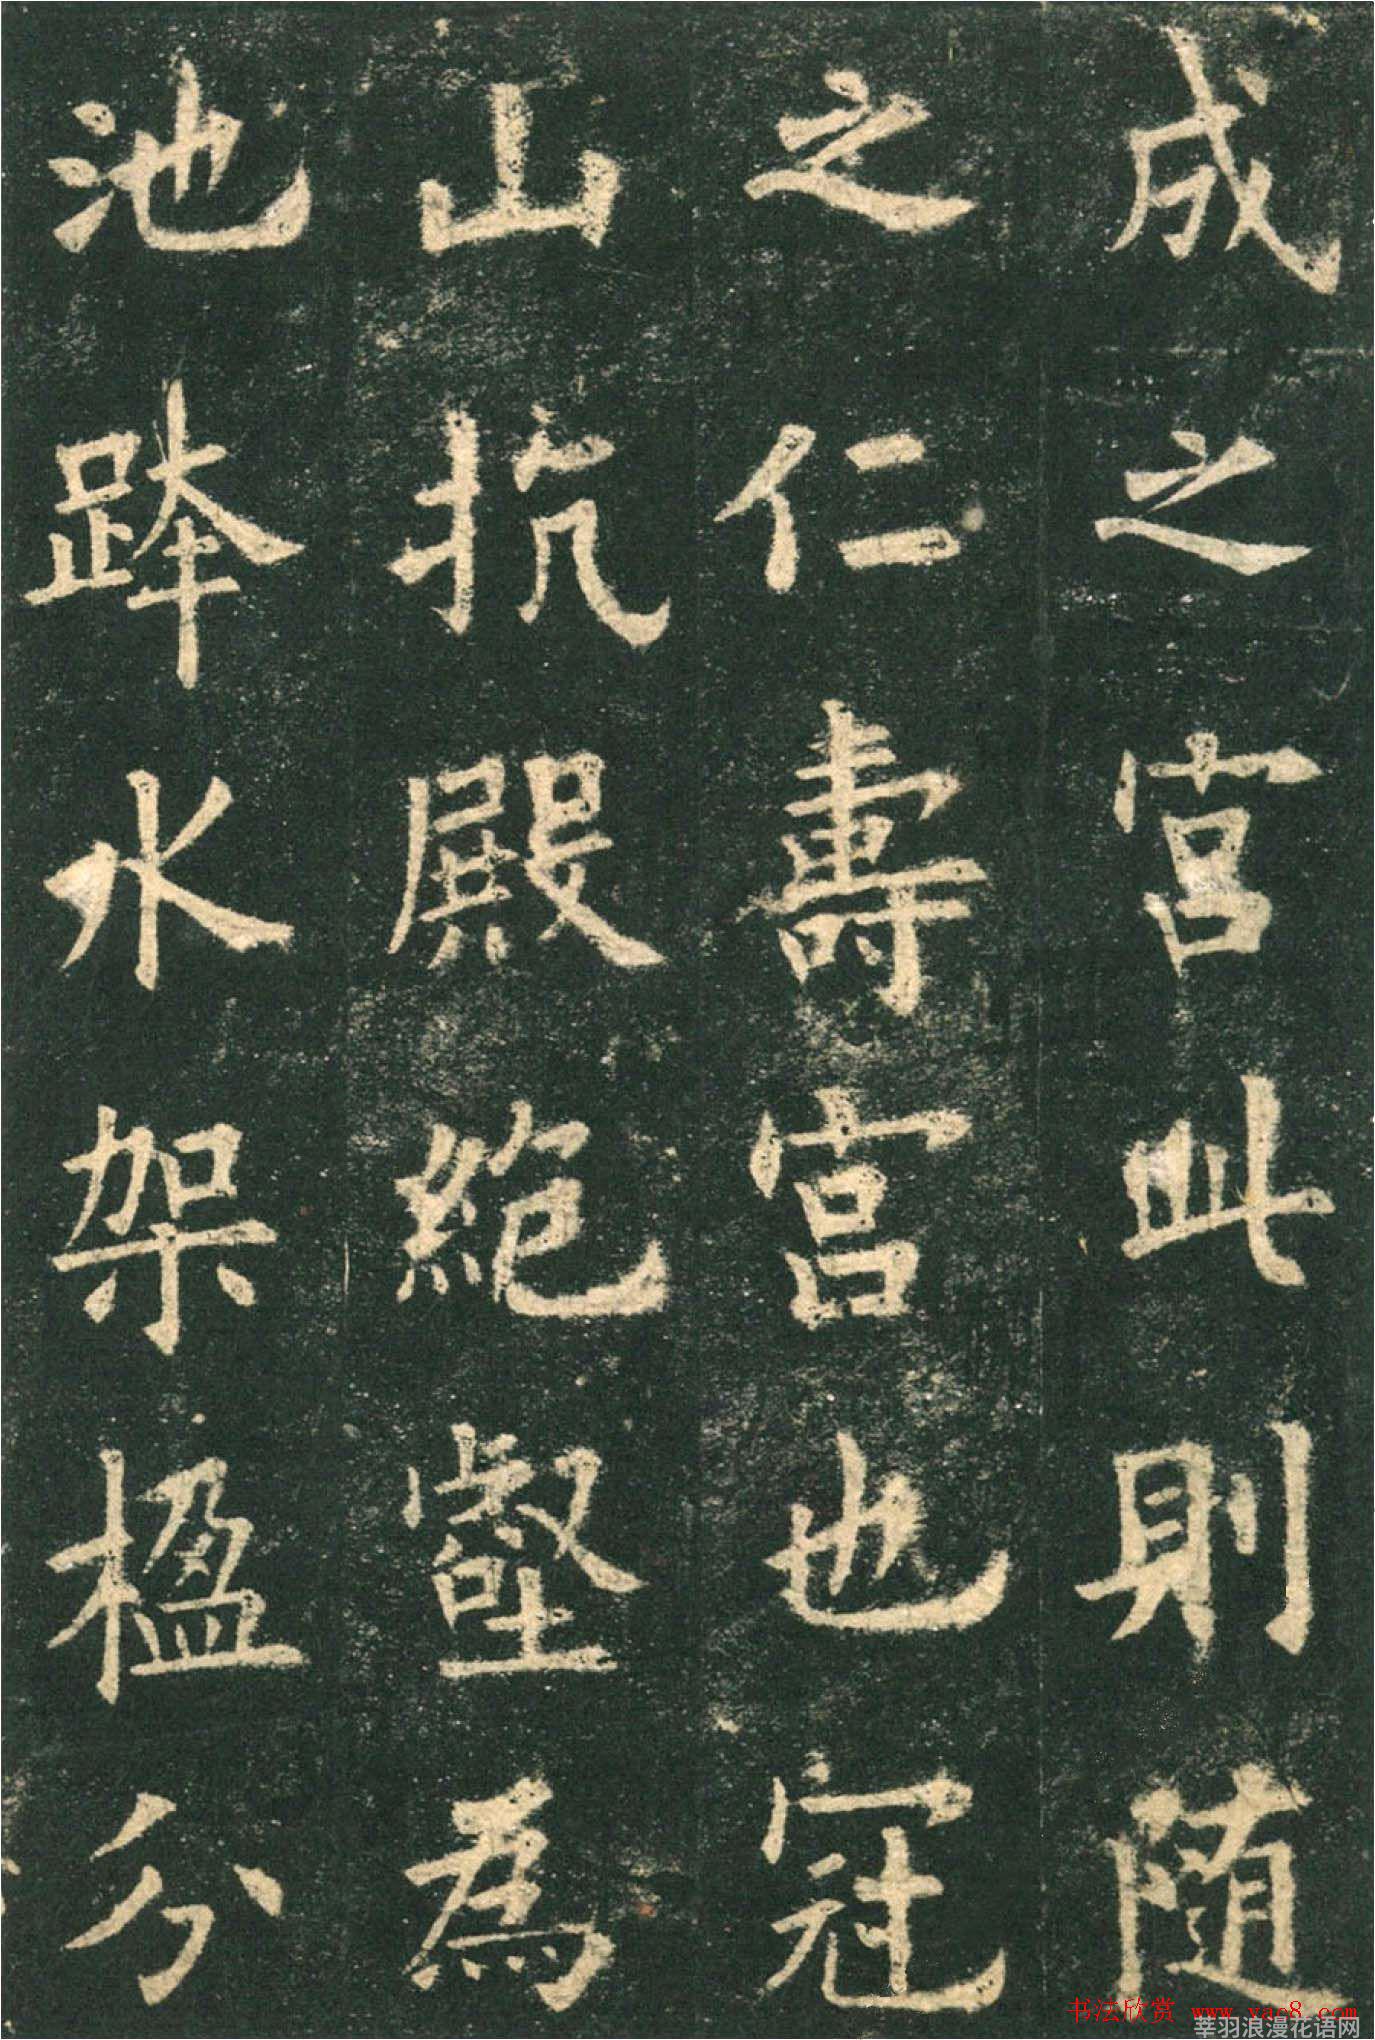 成之宫此則隨
之仁壽宫也冠
山抗殿絶壑為
池跨水架楹分
书法欣赏 www.yac8.com
莘羽浪漫花语网